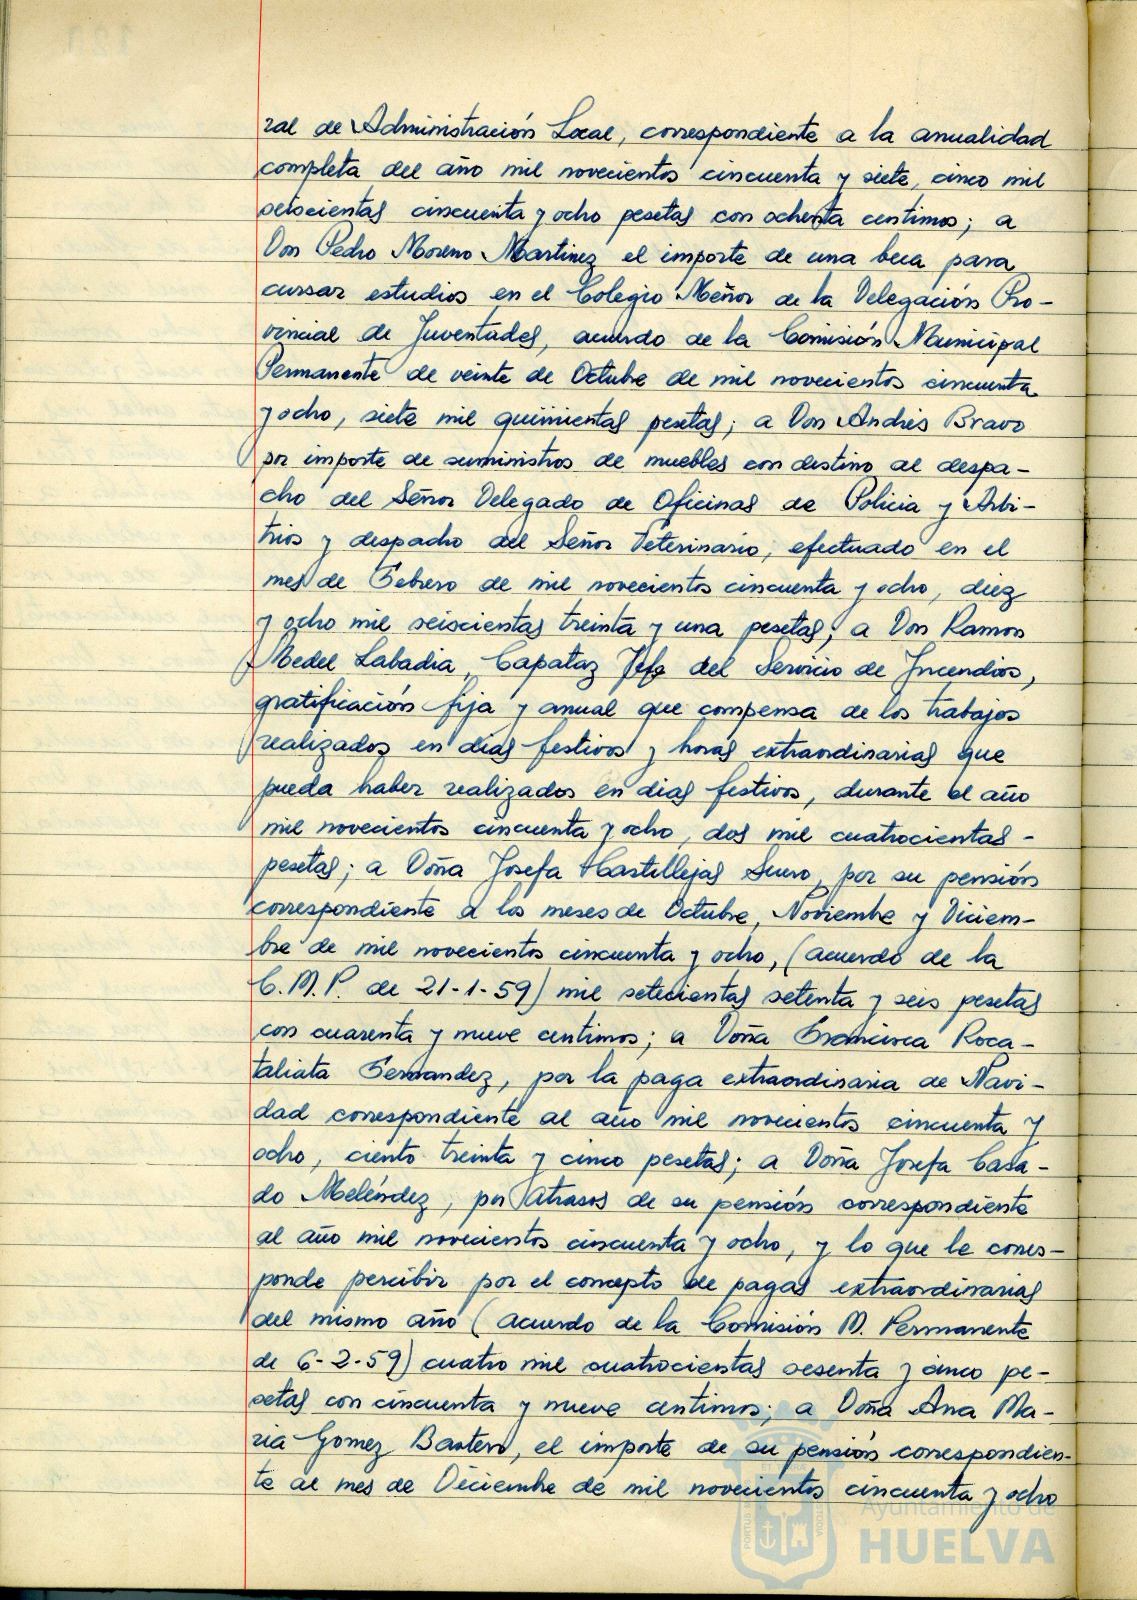 ral de Administración Local, correspondiente a la anualidad
completa del año mil novecientos cincuenta y siete, cinco mil
seiscientas cincuenta y ocho pesetas con ochenta centimos; a
Don Pedro Moreno Martinez el importe de una beca para
cursar estudios en el Colegio Menor de la Delegación Pro-
vincial de Juventudes, acuerdo de la Comisión Municipal
Permanente de veinte de Octubre de mil novecientos cincuenta
y ocho, siete mil quinientas pesetas; a Don Andrés Bravo
por importe de suministros de muebles con destino al despa-
cho del Señor Delegado de Oficinas de Policia y Arbi-
trios y despacho del Señor Veterinario, efectuado en el
mes de Febrero de mil novecientos cincuenta y ocho, diez
y ocho mil seiscientas treinta y una pesetas; a Don Ramon
Medel Labadia, Capataz Jefe del Servicio de Incendios,
gratificación fija y anual que compensa de los trabajos
realizados en dias festivos y horas extraordinarias que
pueda haber realizados en dias festivos, durante el año
mil novecientos cincuenta y ocho, dos mil cuatrocientas-
pesetas; a Doña Josefa Castillejas Suero, por su pensión
correspondiente a los meses de Octubre, Noviembre y Diciem-
bre de mil novecientos cincuenta y ocho, (acuerdo de la
C.M.P. de 21-1-59) mil setecientas setenta y seis pesetas
con cuarenta y nueve centimos; a Doña Francisca Roca-
taliata Fernandez, por la paga extraordinaria de Navi-
dad correspondiente al año mil novecientos cincuenta y
ocho, ciento treinta y cinco pesetas; a Doña Josefa Casa-
do Meléndez, por atrasos de su pensión correspondiente
al año mil novecientos cincuenta y ocho, y lo que le corres-
ponde percibir por el concepto de pagas extraordinarias
del mismo año (acuerdo de la Comisión M. Permanente
de 6-2-59) cuatro mil cuatrocientas sesenta y cinco pe-
setas con cincuenta y nueve centimos; a Doña Ana Ma-
ria Gomez Bastero, el importe de su pensión correspondien-
te al mes de Diciembre de mil novecientos cincuenta y ocho
Ayuntamiento de
HUELVA